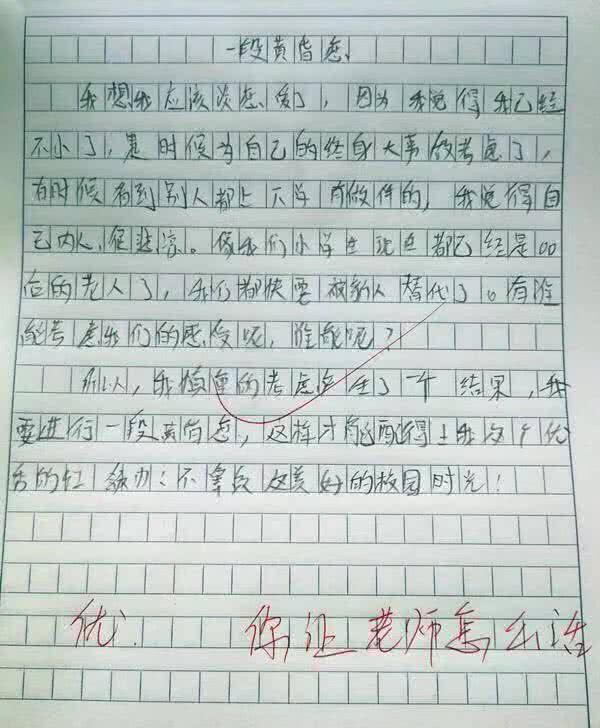 一段黄昏恋
我想我应该谈恋爱了，因为我觉得我已经
不小了，是时候为自己的终身大事做考虑了，
有时候看到别人都上下学有做伴的，我觉得自
己内人很悲凉。像我们小学生现在都已经是00
后的老人了，我们都快要被别人替代了。有谁
能考虑我们的感受呢，谁能呢？
所以，我慎重的考虑产生了一个结果，我
要进行一段黄昏恋，这样才能配得上我这个优
秀的红领巾；不辜负这美好的校园时光！
优 你让老师怎么活